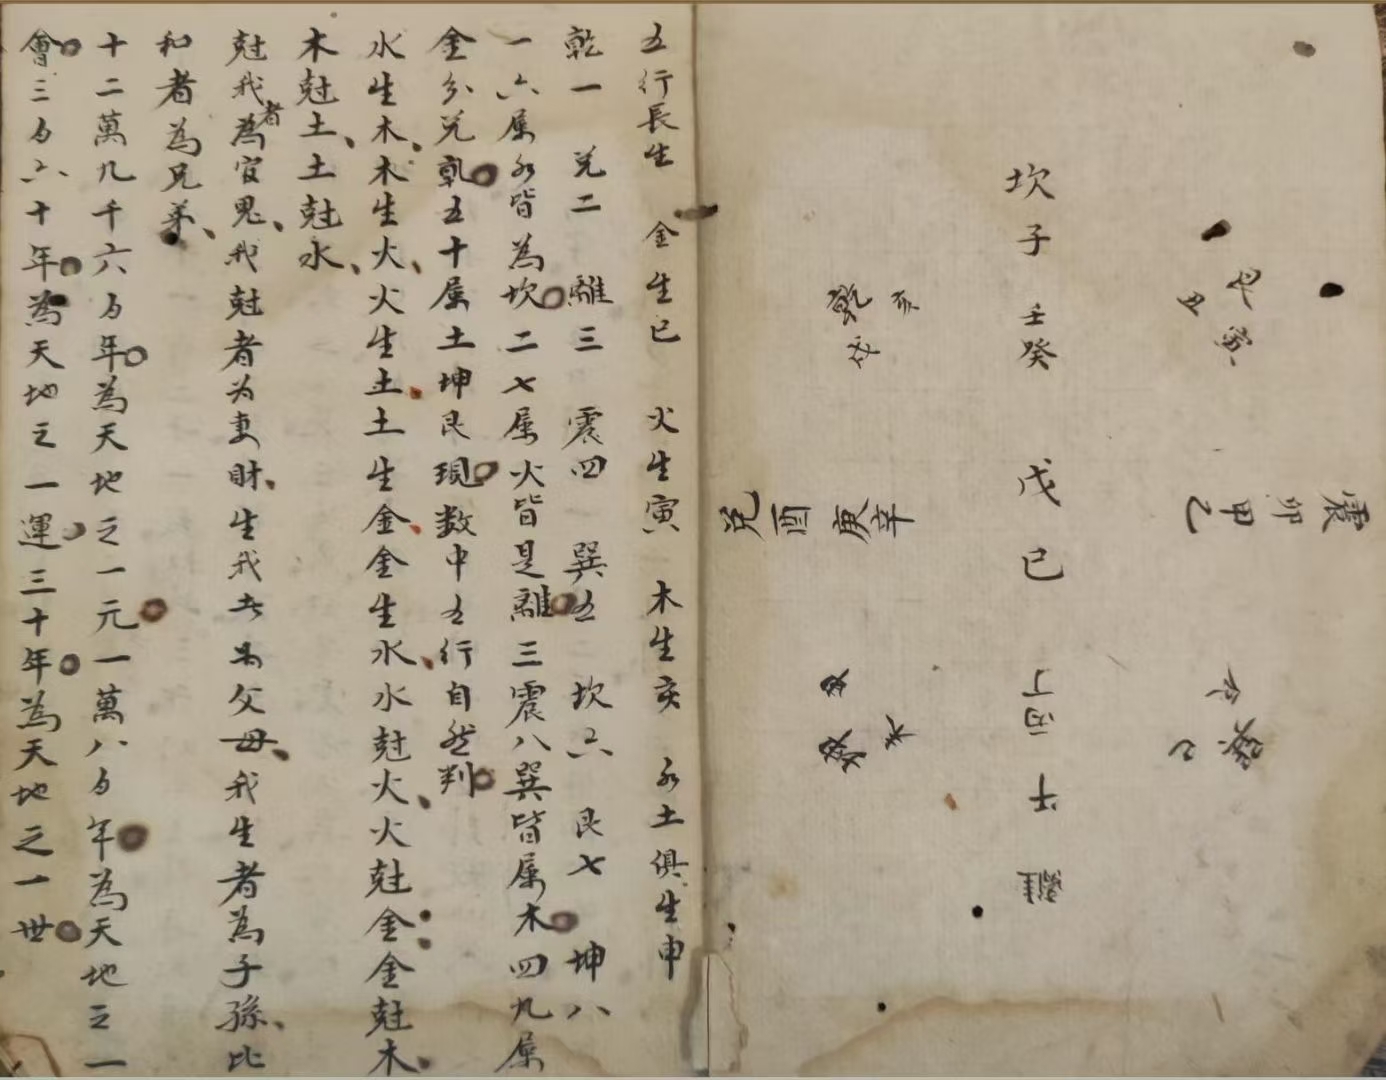 坎子壬癸
戊己
離午丙丁
震卯甲乙
兌酉庚辛
乾亥戌
艮丑寅
巽巳辰
坤未申
五行長生 金生巳 火生寅 木生亥 水土俱生申
乾一 兌二 離三 震四 巽五 坎六 艮七 坤八
一六属水皆為坎二七属火皆是離三震八巽皆属木四九属
金分兌乾五十属土坤艮現数中五行自然判
水生木木生火火生土土生金金生水水尅火火尅金金尅木
木尅土土尅水
尅我者為官鬼我尅者为妻財生我者為父母我生者為子孫比
和者為兄弟
十二萬九千六百年為天地之一元一萬八百年為天地之一
會三百六十年為天地之一運三十年為天地之一世